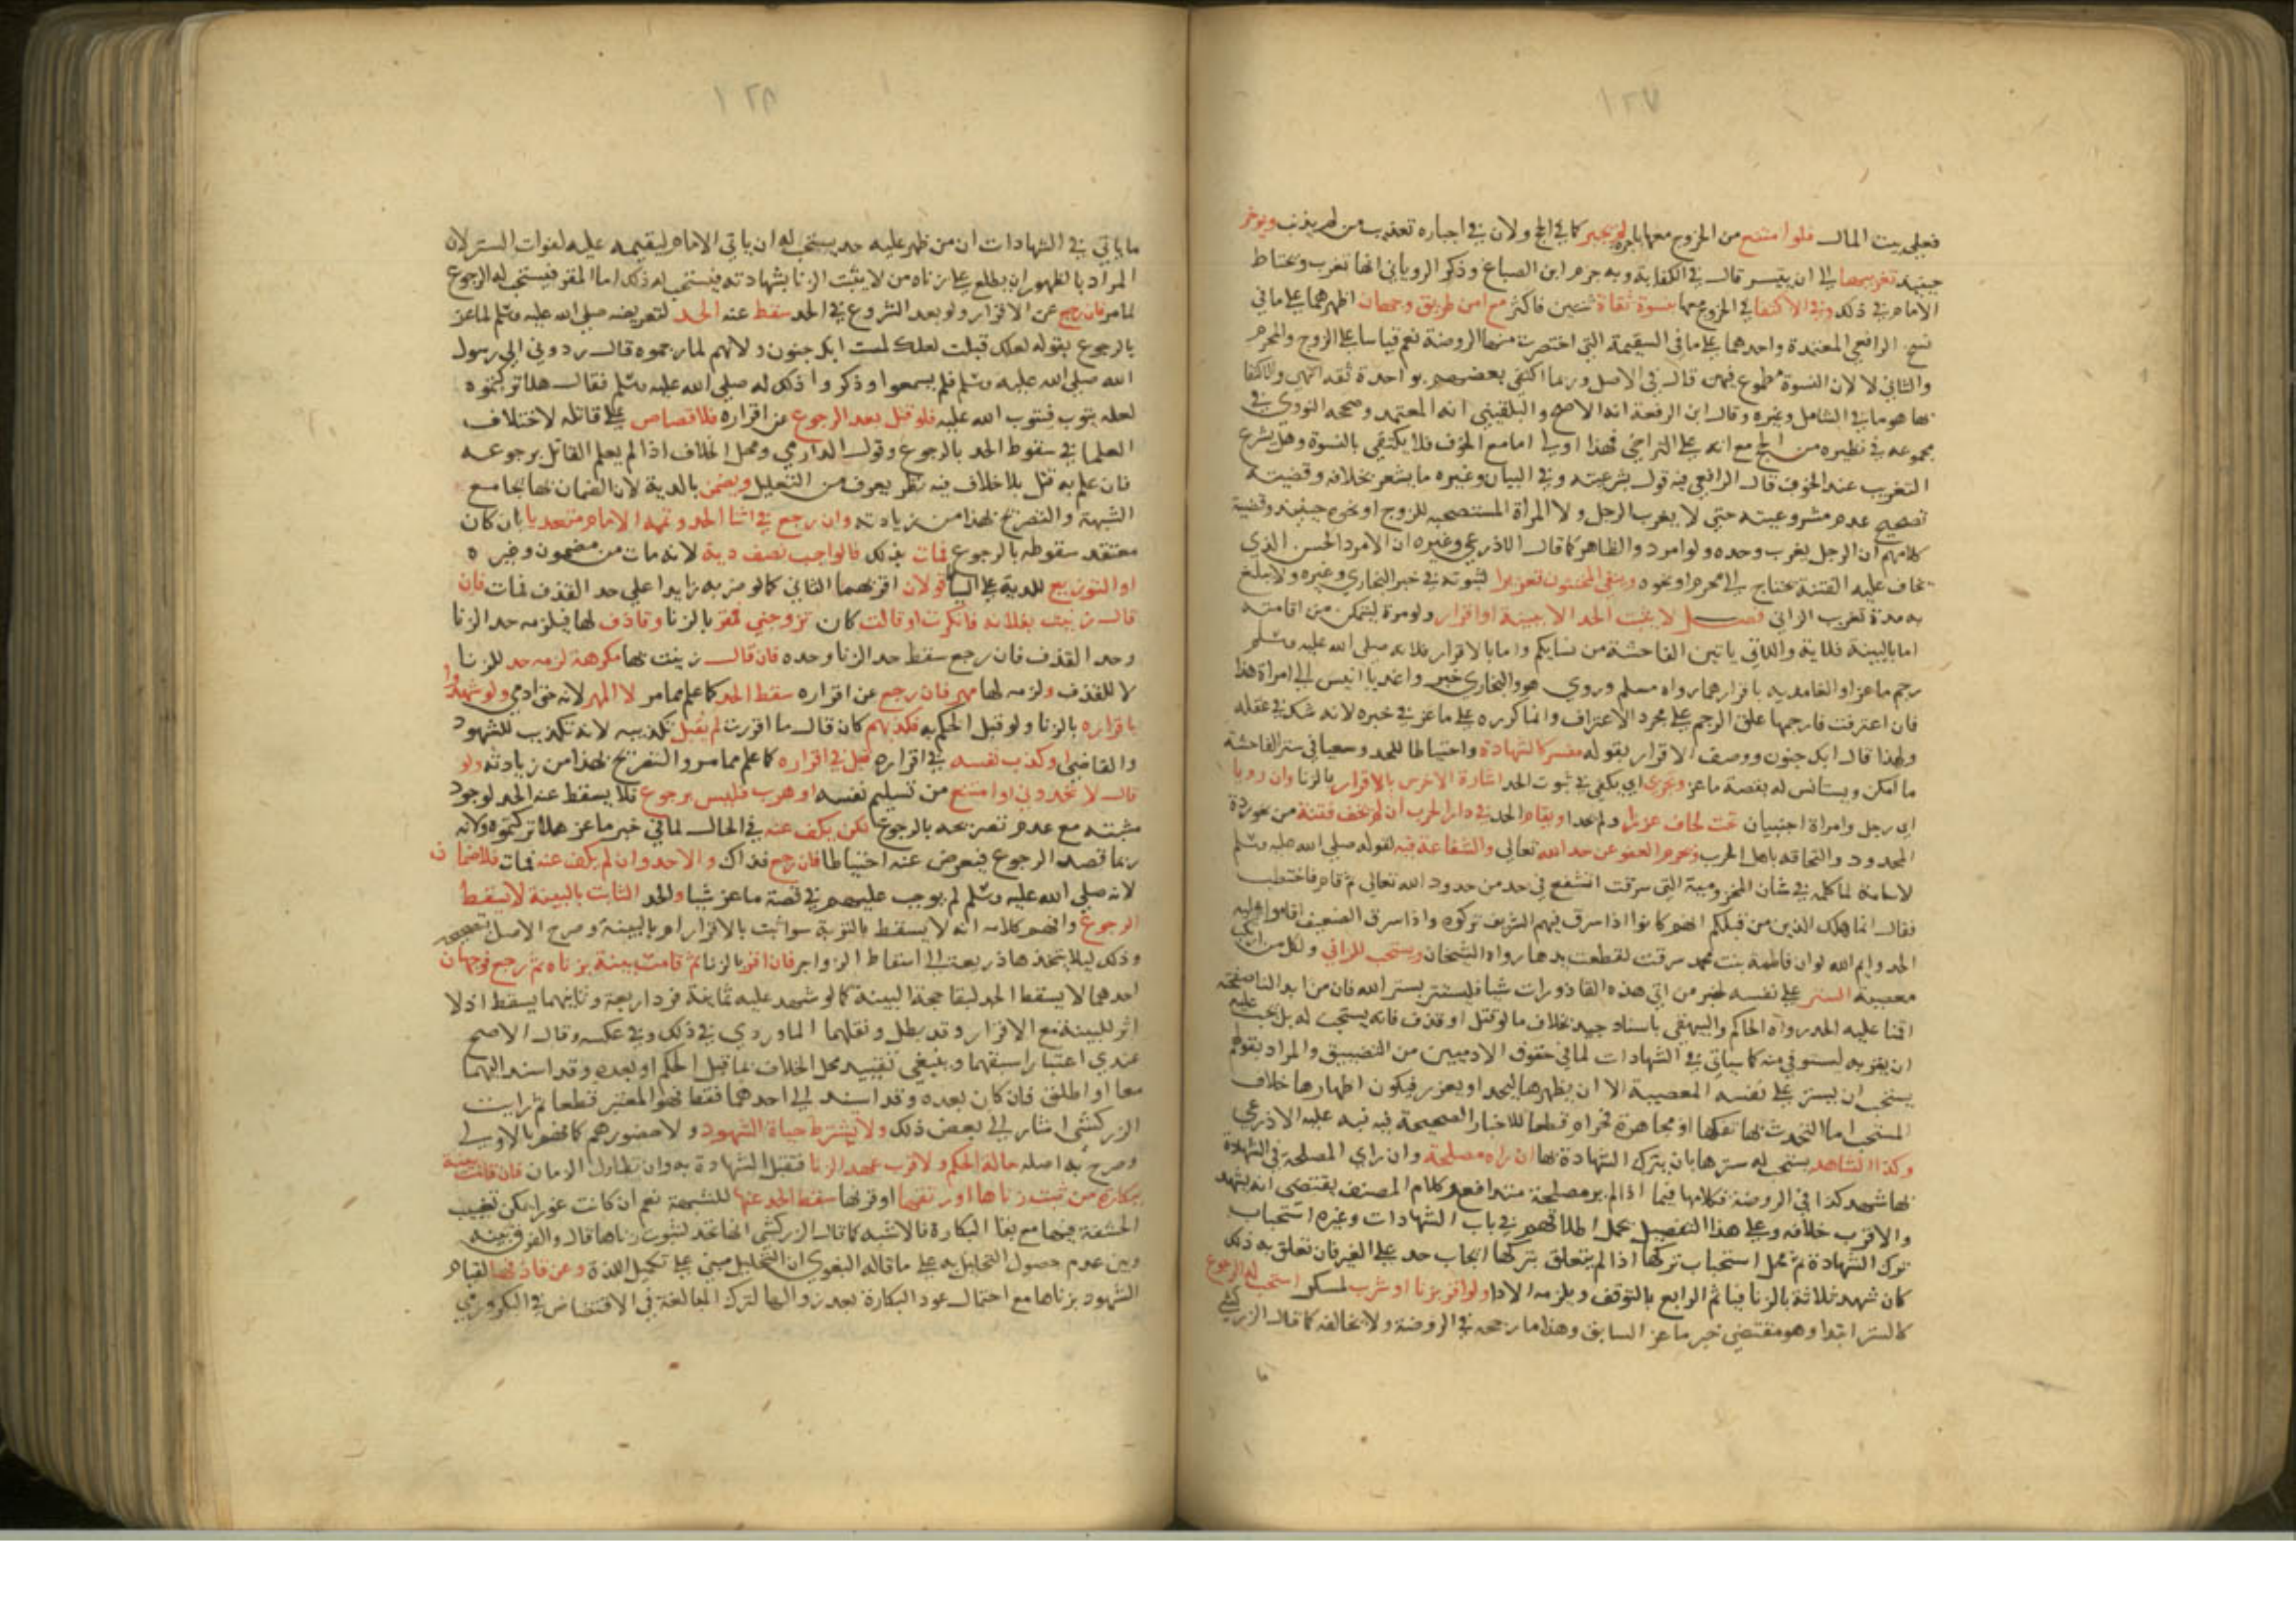 ١٢٧
فعلى بيت المال فلو امتنع من الخروج معها باجرة لم يجبر كما في الحج ولان في اجباره تعذيب من لم يذنب ويوخر
حينيذ تغريبها الى ان يتيسر قال في الكفاية وبه جزم ابن الصباغ وذكر الروياني انها تغرب ويحتاط
الامام في ذلك وفي الاكتفا في الخروج معها بنسوة ثقاة ثنتين فاكثر مع امن طريق وجهان اظهرهما على ما في
نسخ الرافعي المعتمدة واحدهما على ما في السقيمة التي اختصرت منها الروضة نعم قياسا على الزوج والمحرم
والثاني لا لان النسوة مطموع فيهن قال في الاصل وربما اكتفى بعضهم بواحدة ثقة انتهى والاكتفا
بها هو ما في الشامل وغيره وقال ابن الرفعة انه الاصح والبلقيني انه المعتمد وصححه النووي في
مجموعه في نظيره من الحج مع انه على التراخي فهذا اولى اما مع الخوف فلا يكتفي بالنسوة وهل يشرع
التغريب عند الخوف قال الرافعي فيه قول بشرعيته وفي البيان وغيره ما يشعر بخلافه وقضيته
تصحيح عدم مشروعيته حتى لا يغرب الرجل ولا المراة المستصحبه للزوج او نحوه حينيذ وقضية
كلامهم ان الرجل يغرب وحده ولو امرد والظاهر كما قال الاذرعي وغيره ان الامرد الحسن الذي
يخاف عليه الفتنة يحتاج الى محرم او نحوه وينفى المخنثون تعزيرا لثبوته في خبر البخاري وغيره ولا يبلغ
به مدة تغريب الزاني فصل لا يثبت الحد الا ببينة او اقرار ولو مرة ليتمكن من اقامته
اما بالبينة فلاية واللاتي ياتين الفاحشة من نسايكم واما بالاقرار فلانه صلى الله عليه وسلم
رجم ماعزا والغامدية باقرارهما رواه مسلم وروى هو والبخاري خبر واغد يا انيس الى امراة هذا
فان اعترفت فارجمها علق الرجم على مجرد الاعتراف وانما كرره على ماعز في خبره لانه شك في عقله
ولهذا قال ابك جنون ووصف الاقرار بقوله مفسر كالشهادة واحتياطا للحد وسعيا في ستر الفاحشة
ما امكن ويستانس له بقصة ماعز وتجزي اي يكفي في ثبوت الحد اشارة الاخرس بالاقرار بالزنا وان رويا
اي رجل وامراة اجنبيان تحت لحاف عزرا ولم يحدا ويقام الحد في دار الحرب ان لم يخف فتنة من نحو ردة
المحدود والتحاقه باهل الحرب ويحرم العفو عن حد الله تعالى والشفاعة فيه لقوله صلى الله عليه وسلم
لاسامة لما كلمه في شان المخزومية التي سرقت اتشفع في حد من حدود الله تعالى ثم قام فاختطب
فقال انما هلك الذين من قبلكم انهم كانوا اذا سرق فيهم الشريف تركوه واذا سرق الضعيف اقاموا عليه
الحد وايم الله لو ان فاطمة بنت محمد سرقت لقطعت يدها رواه الشيخان ويستحب للزاني ولكل من ارتكب
معصية الستر على نفسه لخبر من اتى هذه القاذورات شيا فليستتر بستر الله فان من ابدا لنا صفحته
اقمنا عليه الحد رواه الحاكم والبيهقي باسناد جيد بخلاف ما لو قتل او قذف فانه يستحب له بل يجب عليه
ان يقر به ليستوفي منه كما سياتي في الشهادات لما في حقوق الادميين من التضييق والمراد بقولهم
يستحب ان يستر على نفسه المعصية الا ان يظهرها ليحد او يعزر فيكون اظهارها خلاف
المستحب اما التحدث بها تفكها او مجاهرة فحرام قطعا للاخبار الصحيحة فيه نبه عليه الاذرعي
وكذا الشاهد يستحب له سترها بان يترك الشهادة بها ان راه مصلحة وان راي المصلحة في الشهادة
بها شهد كذا في الروضة فكلامها فيما اذا لم ير مصلحة متدافع وكلام المصنف يقتضي انه يشهد
والاقرب خلافه وعلى هذا التفصيل يحمل اطلاقهم في باب الشهادات وغيره استحباب
ترك الشهادة ثم محل استحباب تركها اذا لم يتعلق بتركها ايجاب حد على الغير فان تعلق به ذلك
كان شهد ثلاثة بالزنا فياثم الرابع بالتوقف ويلزمه الادا ولو اقر بزنا او شرب لمسكر استحب له الرجوع
كالستر ابتدا وهو مقتضى خبر ماعز السابق وهذا ما رجحه في الروضة ولا يخالفه كما قال الزركشي
ما
١٢٨
ما ياتي في الشهادات ان من ظهر عليه حد يستحب له ان ياتي الامام ليقيمه عليه لفوات الستر لان
المراد بالظهور ان يطلع على زناه من لا يثبت الزنا بشهادته فيستحب له ذلك اما المقر فيستحب له الرجوع
لما مر فان رجع عن الاقرار ولو بعد الشروع في الحد سقط عنه الحد لتعريضه صلى الله عليه وسلم لماعز
بالرجوع بقوله لعلك قبلت لعلك لمست ابك جنون ولانهم لما رجموه قال ردوني الى رسول
الله صلى الله عليه وسلم فلم يسمعوا وذكروا ذلك له صلى الله عليه وسلم فقال هلا تركتموه
لعله يتوب فيتوب الله عليه فلو قتل بعد الرجوع عن اقراره فلا قصاص على قاتله لاختلاف
العلما في سقوط الحد بالرجوع وقول الدارمي ومحل الخلاف اذا لم يعلم القاتل برجوعه
فان علم به قتل بلا خلاف فيه نظر يعرف من التعليل ويضمن بالدية لان الضمان بها يجامع
الشبهة والتصريح بهذا من زيادته وان رجع في اثنا الحد وتممه الامام متعديا بان كان
معتقد سقوطه بالرجوع فمات بذلك فالواجب نصف دية لانه مات من مضمون وغيره
او التوزيع للدية على السياط قولان اقربهما الثاني كما لو ضربه زايدا على حد القذف فمات فان
قال زنيت بفلانة فانكرت او قالت كان تزوجني فمقر بالزنا وقاذف لها فيلزمه حد الزنا
وحد القذف فان رجع سقط حد الزنا وحده فان قال زنيت بها مكرهة لزمه حد للزنا
لا للقذف ولزمه لها مهر فان رجع عن اقراره سقط الحد كما علم مما مر لا المهر لانه حق ادمي ولو شهدوا
باقراره بالزنا ولو قبل الحكم به فكذبهم كان قال ما اقررت لم يقبل تكذيبه لانه تكذيب للشهود
والقاضي او كذب نفسه في اقراره قبل في اقراره كما علم مما مر والتصريح بهذا من زيادته ولو
قال لا تحدوني او امتنع من تسليم نفسه او هرب فليس برجوع فلا يسقط عنه الحد لوجود
مثبته مع عدم تصريحه بالرجوع لكن يكف عنه في الحال لما في خبر ماعز هلا تركتموه ولانه
ربما قصد الرجوع فيعرض عنه احتياطا فان رجع فذاك والا حد وان لم يكف عنه فمات فلا ضمان
لانه صلى الله عليه وسلم لم يوجب عليهم في قصة ماعز شيا والحد الثابت بالبينة لا يسقط
الرجوع وافهم كلامه انه لا يسقط بالتوبة سوا ثبت بالاقرار ام بالبينة وصرح الاصل
وذلك ليلا يتخذ هاذريعة الى اسقاط الزواجر فان اقر بالزنا ثم قامت بينة بزناه ثم رجع فوجهان
احدهما لا يسقط الحد لبقا حجة البينة كما لو شهد عليه ثمانية فرد اربعة وثانيهما يسقط اذ لا
اثر للبينة مع الاقرار وقد بطل ونقلهما الماوردي في ذلك وفي عكسه وقال الاصح
عندي اعتبار اسبقهما وينبغي تقييد محل الخلاف بما قبل الحكم او بعده وقد اسند اليهما
معا او اطلق فان كان بعده وقد اسند الى احدهما فقط فهو المعتبر قطعا ثم رايت
الزركشي اشار الى بعض ذلك ولا يشترط حياة الشهود ولا حضورهم كما فهم بالاولى
وصرح به اصله حالة الحكم ولا قرب عهد الزنا فتقبل الشهادة به وان تطاول الزمان فان قامت بينة
ببكارة من ثبت زناها او رتقها او قرنها سقط الحد عنها للشبهة نعم ان كانت غورا يمكن تغييب
الحشفة فيها مع بقا البكارة فالاشبه كما قال الزركشي انها تحد لثبوت زناها قال والفرق بينه
وبين عدم حصول التحليل به على ما قاله البغوي ان التحليل مبني على تكميل اللذة وعن قاذفها لقيام
الشهود بزناها مع احتمال عود البكارة بعد زوالها لترك المبالغة في الافتضاض في البكر ورمي